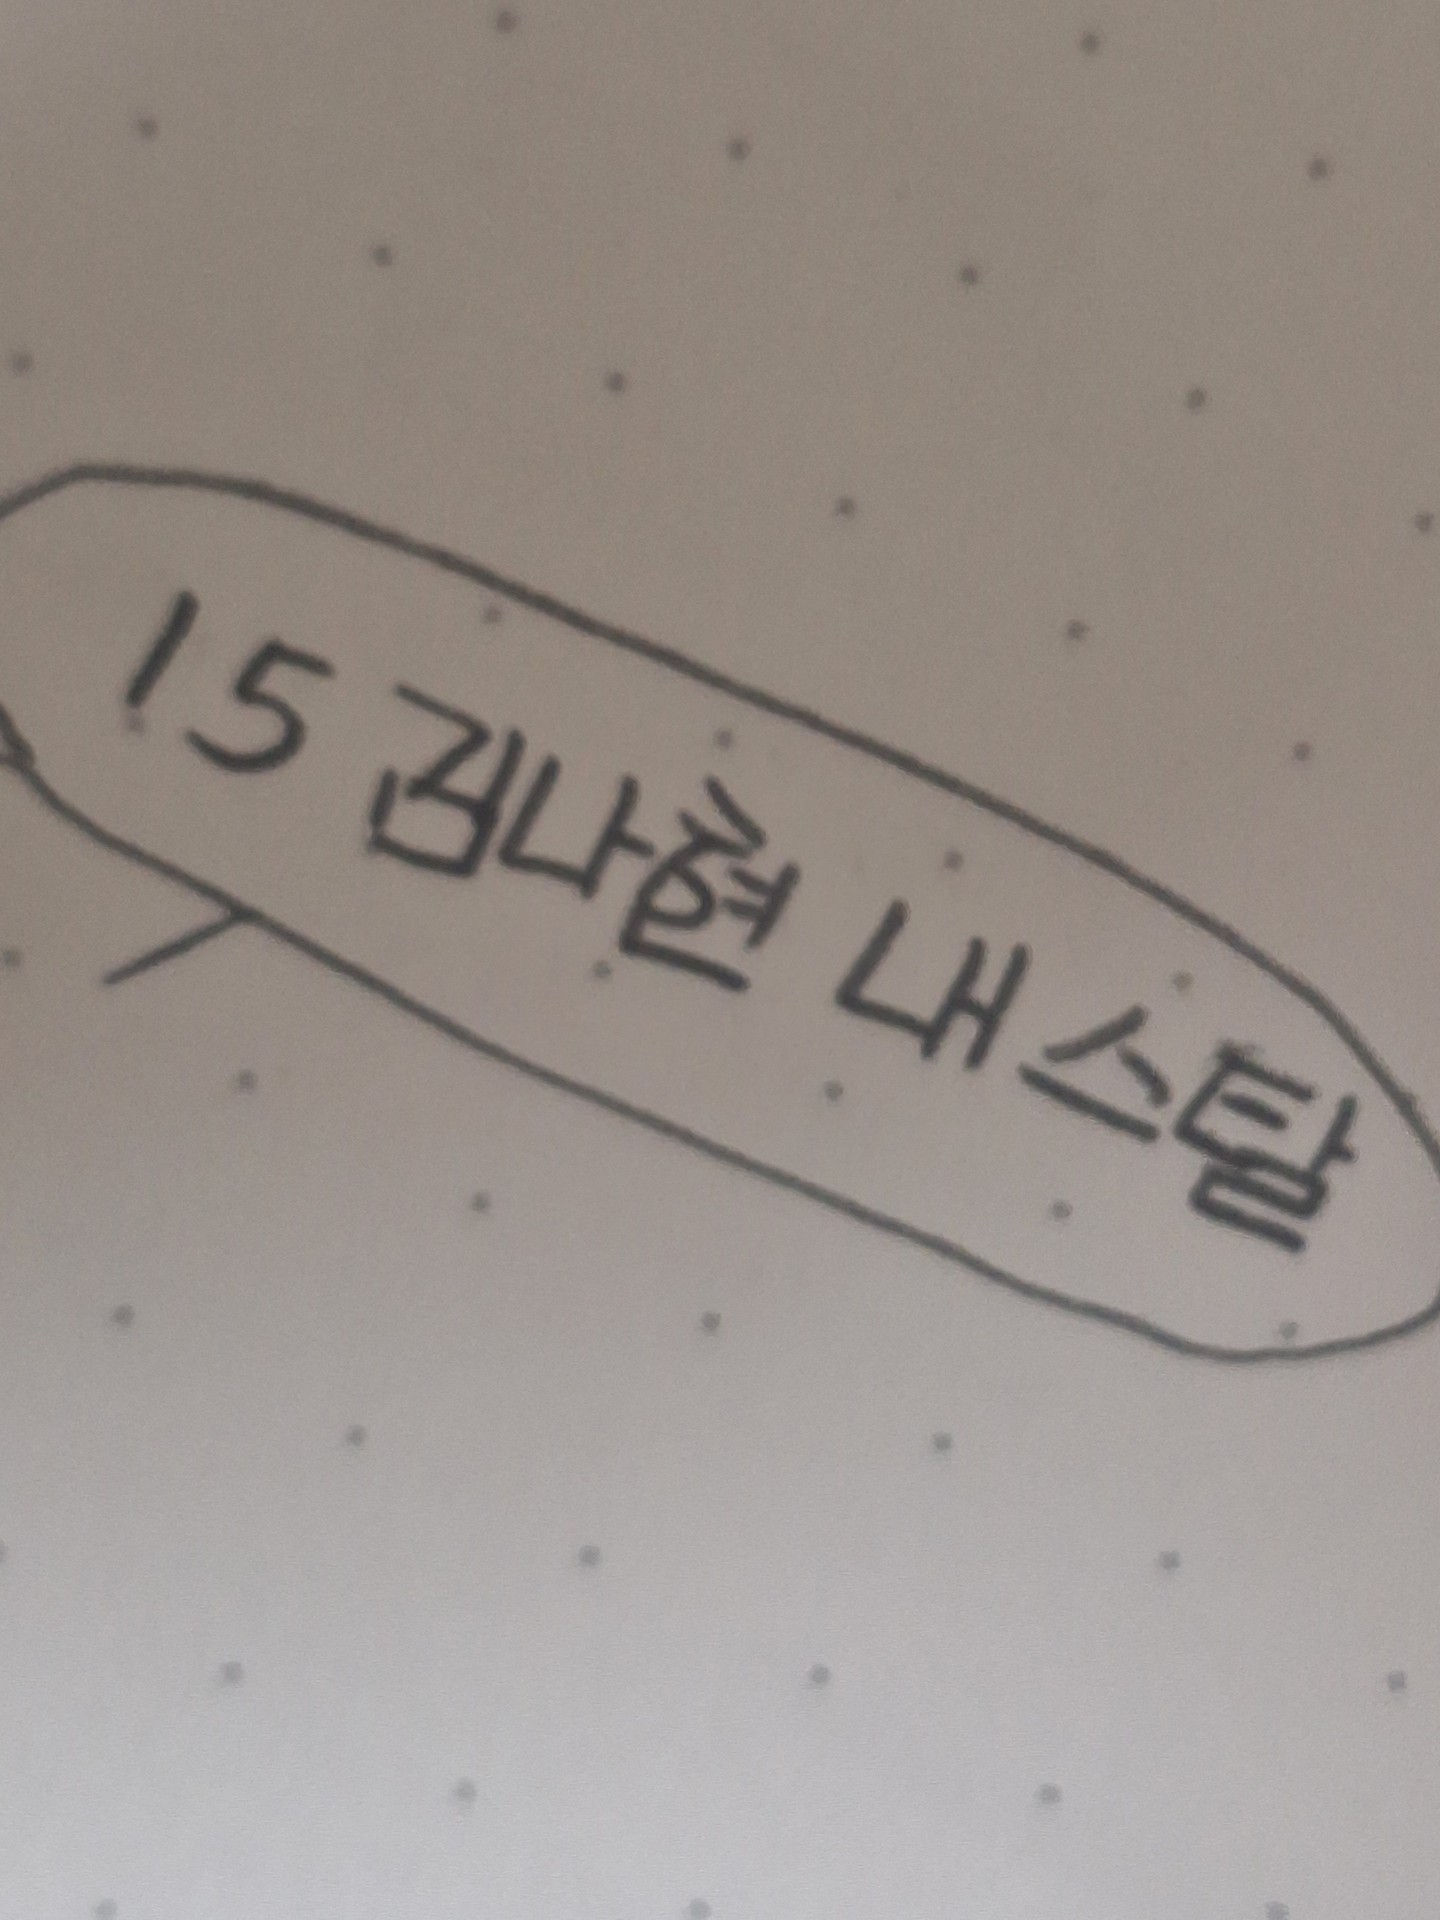 15 김나현 내 스탈